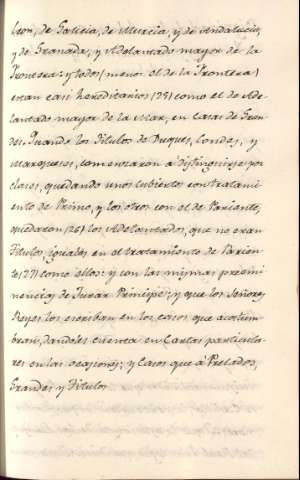 Leon, de Galicia, de Murcia, y de Andalucia,
y de Granada, y Adelantado mayor de la
Frontera: y todos (menos el de la Frontera)
eran casi hereditarios (25) como el de Ade-
lantado mayor de la Mar, en Casas de Gran-
des. Quando los Titulos de Duques, Condes, y
Marqueses, comenzaron a distinguirse por
clases, quedando unos cubiertos con tratami-
ento de Primo, y los otros con el de Pariente,
quedaron (26) los Adelantados, que no eran
Titulos, iguales en el tratamiento de Parien-
te (27) como ellos: y con las mismas preemi-
nencias de Jurar Principe; y que los Señores
Reyes los escriban en los casos que acostum-
bran, dandoles cuenta en Cartas particula-
res en las ocasiones, y Casos que à Prelados,
Grandes y Titulos